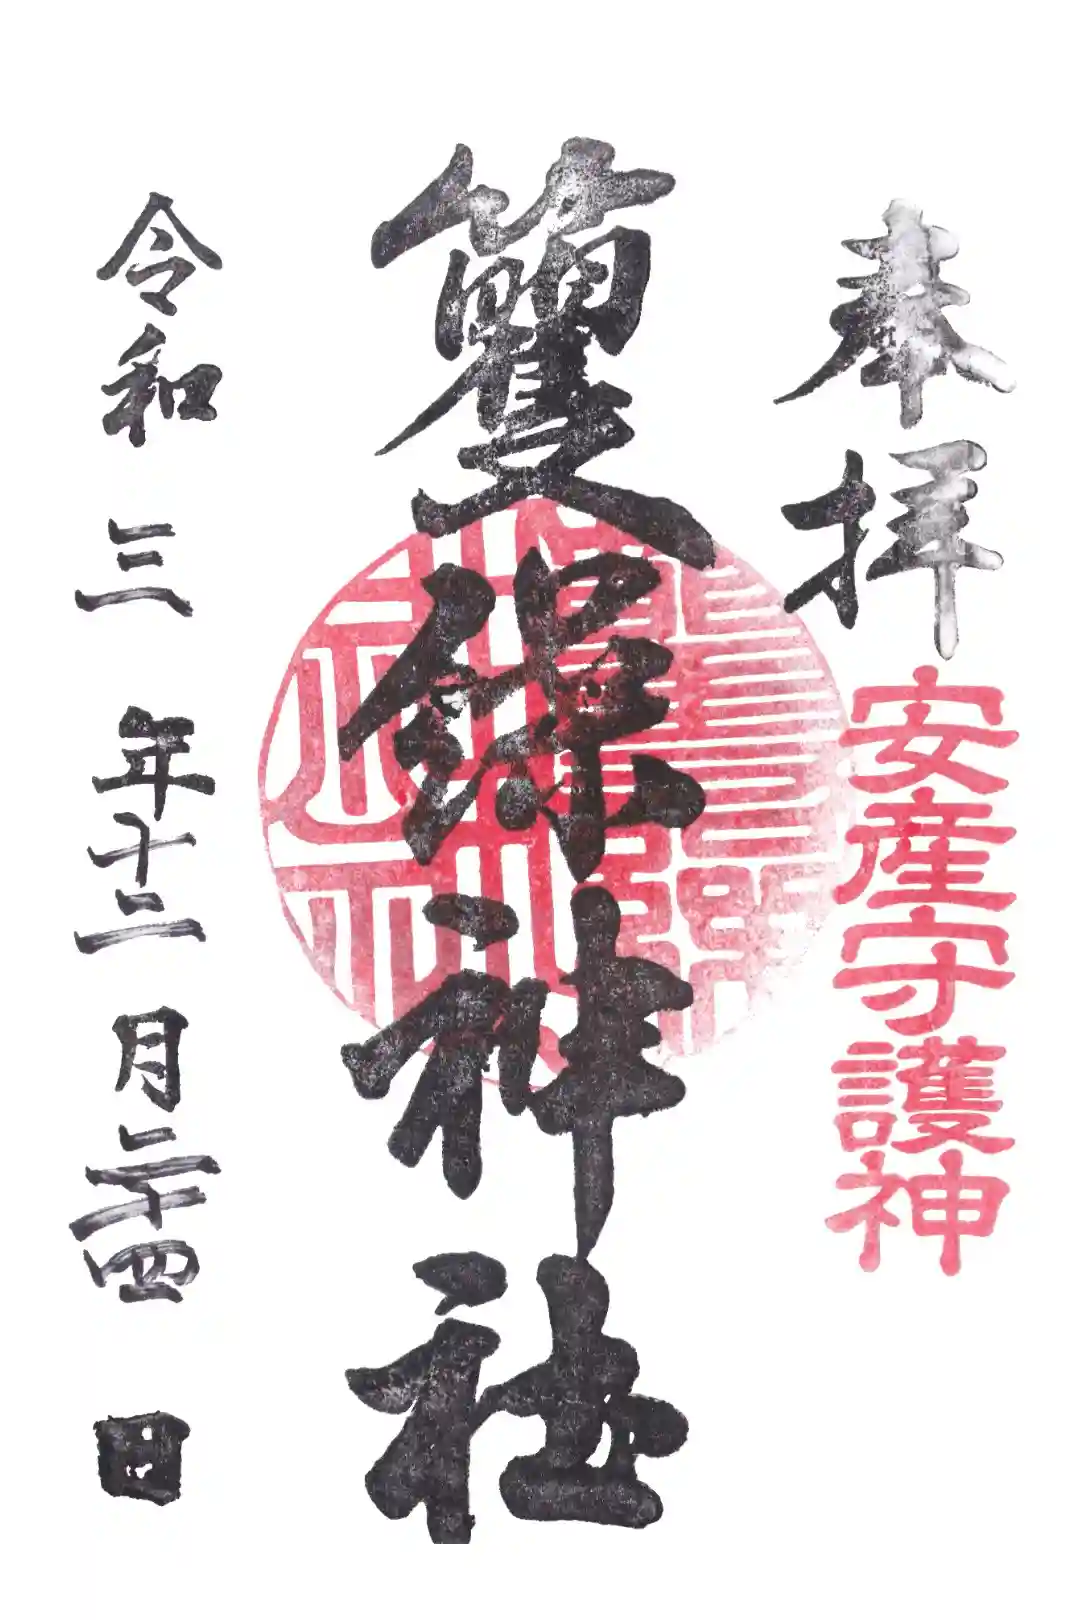 奉拝
安産守護神
籰繰神社
令和三年十二月二十四日